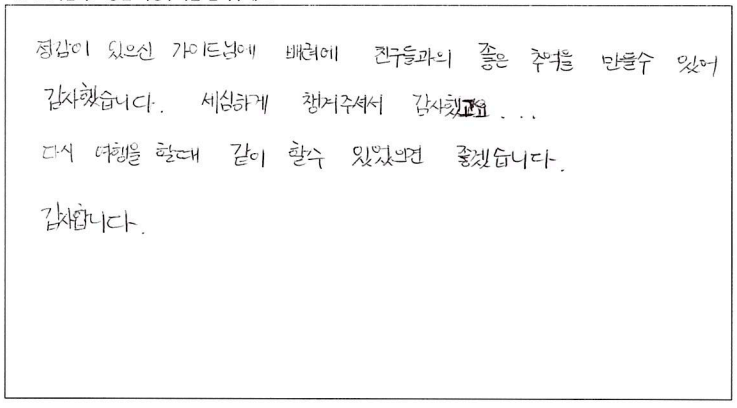 정감이 있으신 가이드님에 배려에 친구들과의 좋은 추억을 만들수 있어
감사했습니다. 세심하게 챙겨주셔서 감사했고요...
다시 여행을 할때 같이 할수 있었으면 좋겠습니다.
감사합니다.